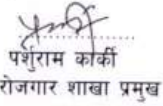 पर्शुराम कार्की
रोजगार शाखा प्रमुख